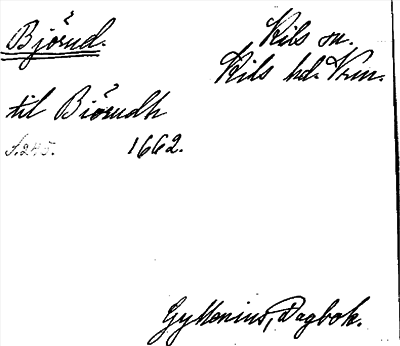 Björud.
Kils sn.
Kils hd. Vrm.
til Biörudh
s. 245. 1662.
Gyllenius, Dagbok.